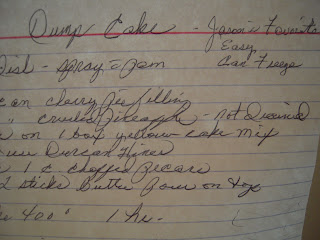 Dump Cake - Jason's Favorite
Easy
Can Freeze
Dish - spray c Pam
can cherry pie filling
" crushed pineapple - not drained
on 1 box yellow cake mix
use Duncan Hines
1 c chopped pecans
2 sticks butter pour on top
400° 1 hr.